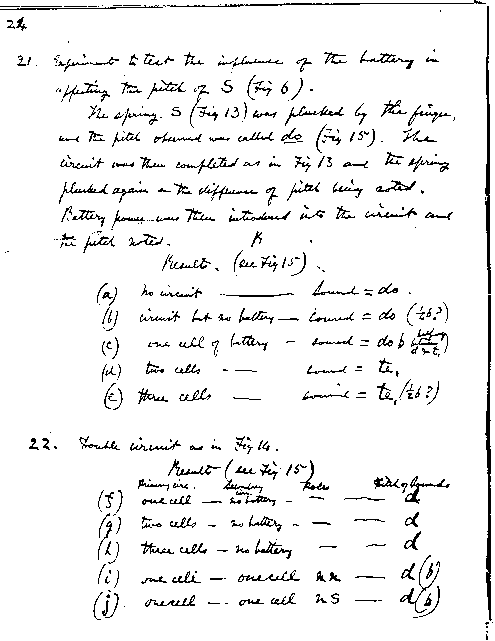 24
21. Experiment to test the influence of the battery in
affecting the pitch of S (Fig 6).
The spring S (Fig 13) was plucked by the finger,
and the pitch observed was called do (Fig 15). The
circuit was then completed as in Fig 13 and the spring
plucked again & the difference of pitch being noted.
Battery power was then introduced into the circuit and
the pitch noted.
Results. (see Fig 15).
(a) no circuit — sound = do.
(b) circuit but no battery — sound = do (½b?)
(c) one cell of battery — sound = do b
(d) two cells — sound = te,
(e) three cells — sound = te, (½b?)
22. Double circuit as in Fig 14.
Result (see Fig 15)
Primary circ. Secondary Poles Pitch of Sounds
(f) one cell — no battery — — — d
(g) two cells — no battery — — — d
(h) three cells — no battery — — d
(i) one cell — one cell nn — d (b)
(j) one cell — one cell nS — d (b)